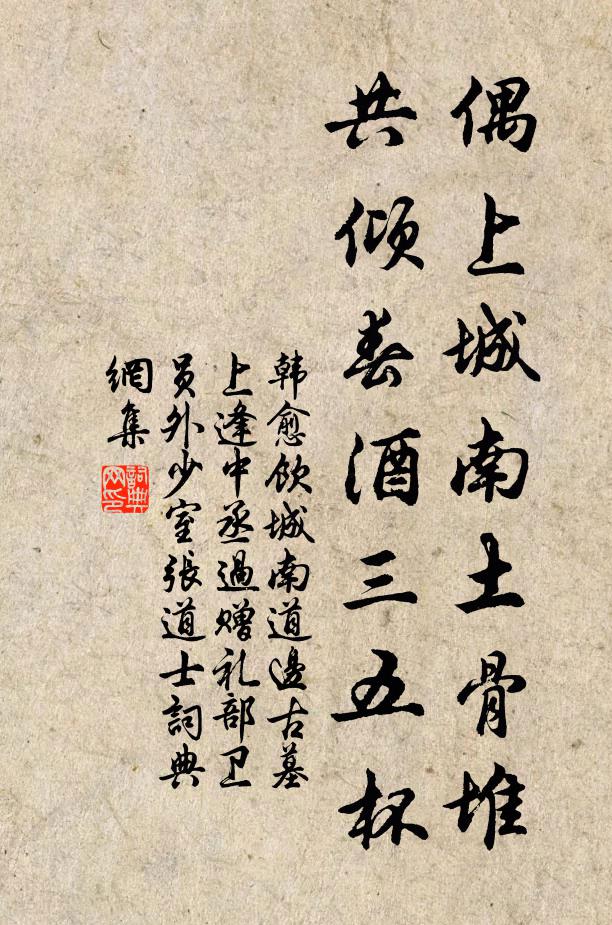 偶上城南土骨堆
共倾春酒三五杯
韩愈饮城南道邊古墓
上逢中丞過赠礼部卫
员外少室張道士詞典
網集
詞典
网印